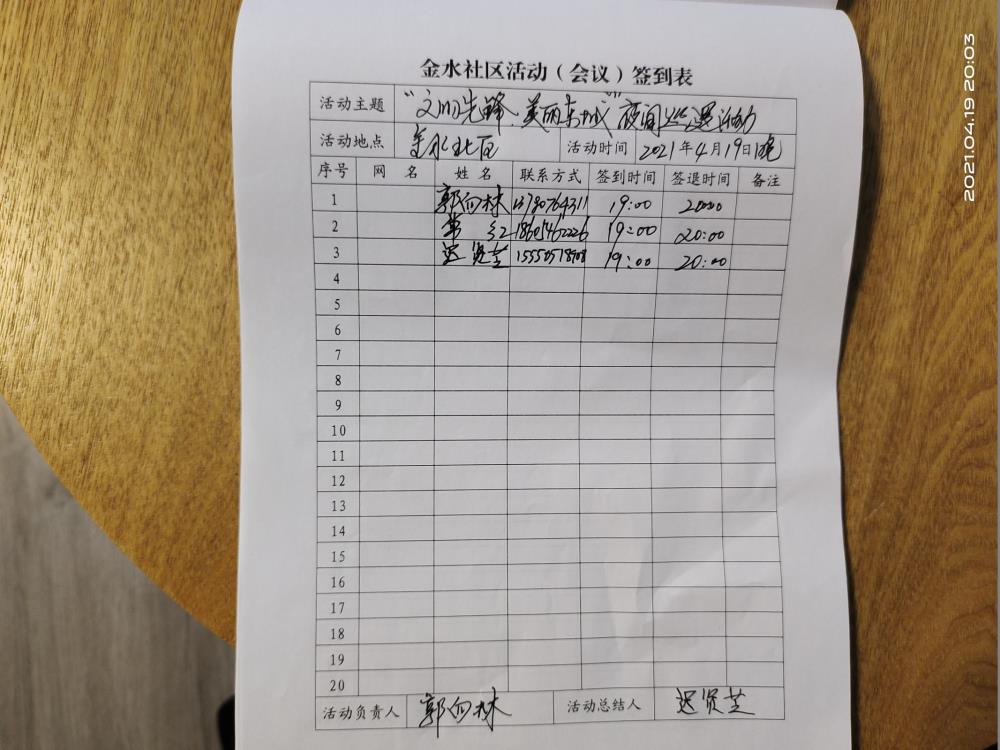 金水社区活动（会议）签到表
活动主题 “文明先锋、美丽东城”夜间巡逻活动
活动地点 金水北区 活动时间 2021年4月19日晚
序号 网名 姓名 联系方式 签到时间 签退时间 备注
1 郭向林 19:00 20:00
2 常 19:00 20:00
3 迟贤芝 19:00 20:00
4
5
6
7
8
9
10
11
12
13
14
15
16
17
18
19
20
活动负责人 郭向林 活动总结人 迟贤芝
2021.04.19 20:03